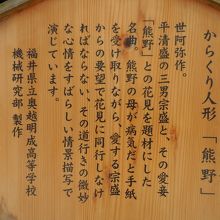 からくり人形「熊野」
世阿弥作。
平清盛の三男宗盛と、その愛妾
「熊野」との花見を題材にした
名曲。熊野の母が病気だと手紙
を受け取りながら、愛する宗盛
からの要望で花見に同行しなけ
ればならない、その道行きの微妙
な心情をすばらしい情景描写で
演じています。
福井県立奥越明成高等学校
機械研究部 製作